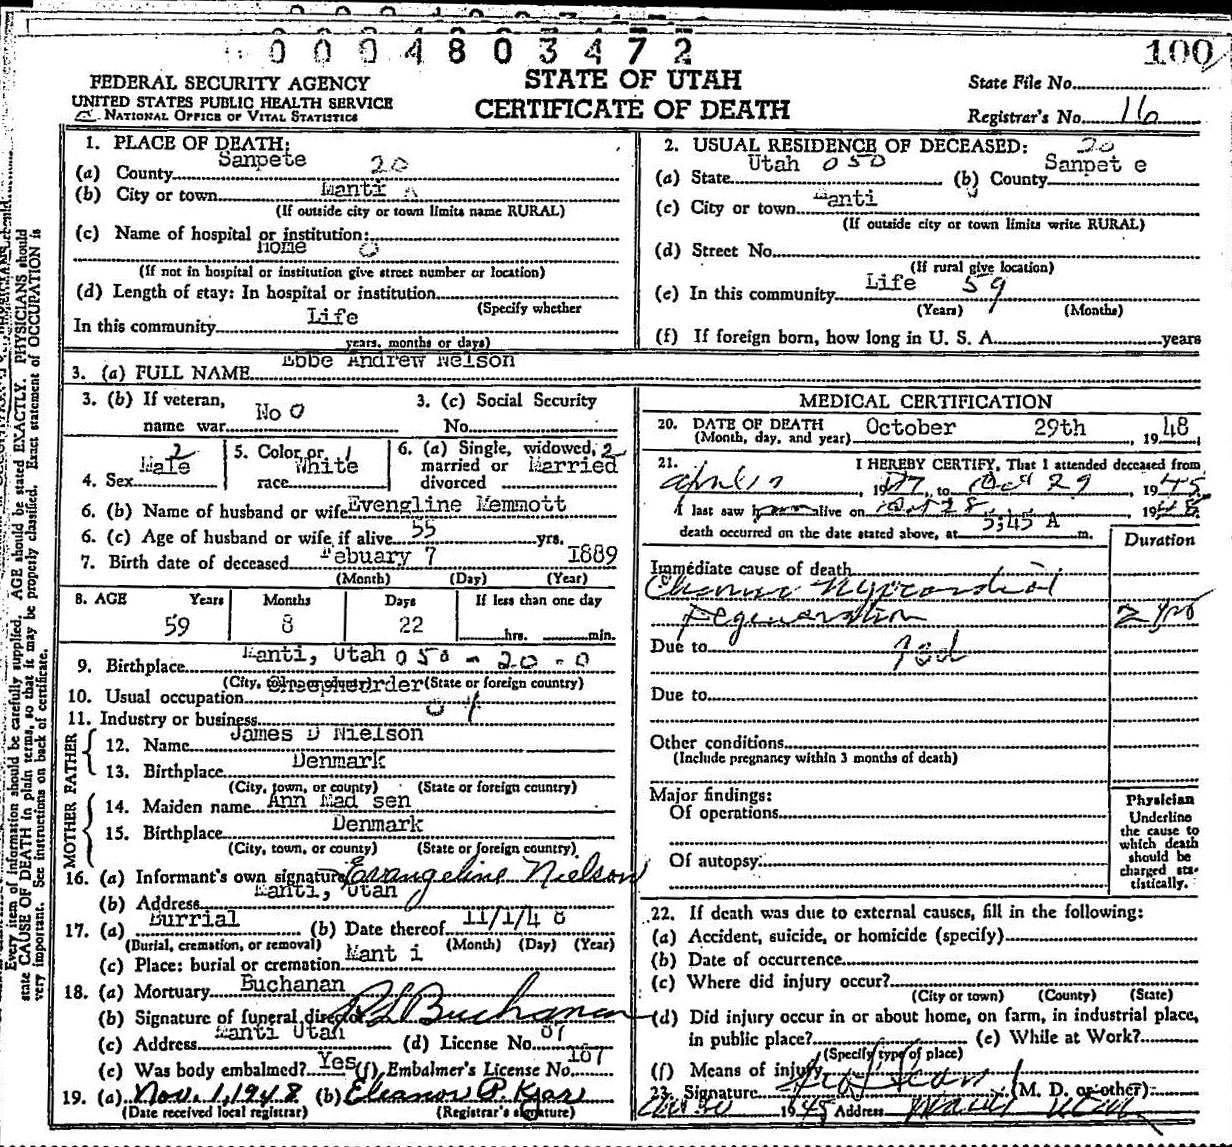 0 0 0 4 8 0 3 4 7 2
100
FEDERAL SECURITY AGENCY
UNITED STATES PUBLIC HEALTH SERVICE
NATIONAL OFFICE OF VITAL STATISTICS
STATE OF UTAH
CERTIFICATE OF DEATH
State File No.
Registrar's No. 16
Every item of information should be carefully supplied. AGE should be stated EXACTLY. PHYSICIANS should
state CAUSE OF DEATH in plain terms, so that it may be properly classified. Exact statement of OCCUPATION is
very important. See instructions on back of certificate.
1. PLACE OF DEATH:
(a) County Sanpete 20
(b) City or town Manti
(If outside city or town limits name RURAL)
(c) Name of hospital or institution:
Home 0
(If not in hospital or institution give street number or location)
(d) Length of stay: In hospital or institution
(Specify whether
In this community Life
years, months or days)
2. USUAL RESIDENCE OF DECEASED: 20
(a) State Utah 050 (b) County Sanpet e
(c) City or town Manti
(If outside city or town limits write RURAL)
(d) Street No.
(If rural give location)
(e) In this community Life 59
(Years) (Months)
(f) If foreign born, how long in U. S. A. years
3. (a) FULL NAME Ebbe Andrew Nelson
3. (b) If veteran,
name war No 0
3. (c) Social Security
No.
4. Sex Male 2
5. Color or
race White 1
6. (a) Single, widowed, 2
married or Married
divorced
6. (b) Name of husband or wife Evengline Memmott
6. (c) Age of husband or wife, if alive 55 yrs.
7. Birth date of deceased Febuary 7 1889
(Month) (Day) (Year)
8. AGE Years Months Days If less than one day
59 8 22 hrs. min.
9. Birthplace Manti, Utah 050-20-0
(City, (State or foreign country)
10. Usual occupation Sheepherder
04
11. Industry or business
FATHER
12. Name James D Nielson
13. Birthplace Denmark
(City, town, or county) (State or foreign country)
MOTHER
14. Maiden name Ann Mad sen
15. Birthplace Denmark
(City, town, or county) (State or foreign country)
16. (a) Informant's own signature Evangeline Nielson
(b) Address Manti, Utah
17. (a) Burrial (b) Date thereof 11/1/4 8
(Burial, cremation, or removal) (Month) (Day) (Year)
(c) Place: burial or cremation Mant i
18. (a) Mortuary Buchanan
(b) Signature of funeral director Buchanan
(c) Address Manti Utah (d) License No. 87
(e) Was body embalmed? Yes (f) Embalmer's License No. 167
19. (a) Nov. 1, 1948 (b) Eleanor P. Kjar
(Date received local registrar) (Registrar's signature)
MEDICAL CERTIFICATION
20. DATE OF DEATH October 29th, 1948
(Month, day, and year)
21. I HEREBY CERTIFY, That I attended deceased from
April 19 , to Oct 29 1948
I last saw him alive on Oct 28 1948
death occurred on the date stated above, at 5:45 A m.
Duration
Immediate cause of death
Chronic Myocardial
Degeneration 2 yrs
Due to
Due to
Other conditions
(Include pregnancy within 3 months of death)
Major findings:
Of operations
Of autopsy
Physician
Underline
the cause to
which death
should be
charged sta-
tistically.
22. If death was due to external causes, fill in the following:
(a) Accident, suicide, or homicide (specify)
(b) Date of occurrence
(c) Where did injury occur?
(City or town) (County) (State)
(d) Did injury occur in or about home, on farm, in industrial place,
in public place? (e) While at Work?
(Specify type of place)
(f) Means of injury
23. Signature (M. D. or other)
Address Manti Utah